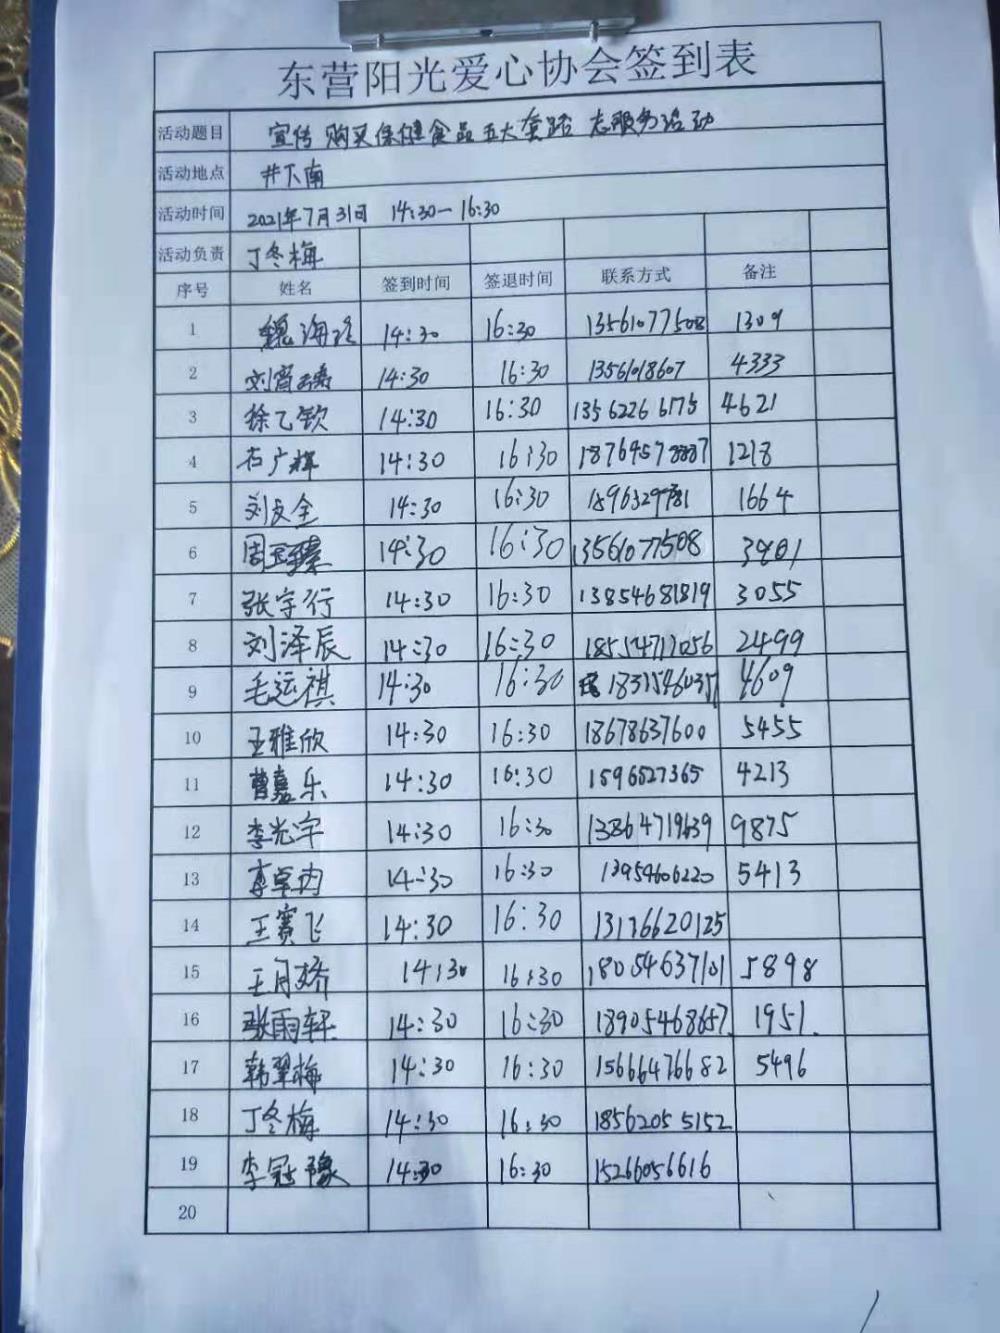 东营阳光爱心协会签到表
活动题目 宣传 购买保健食品五大套路 志服务活动
活动地点 井下南
活动时间 2021年7月31日 14:30—16:30
活动负责 丁冬梅
序号 姓名 签到时间 签退时间 联系方式 备注
1 魏海珍 14:30 16:30 13561077508 1309
2 14:30 16:30 1356018607 4333
3 徐乙钦 14:30 16:30 13562266175 4621
4 石广辉 14:30 16:30 1218
5 刘友全 14:30 16:30 1664
6 14:30 16:30 13561077508
7 张宇行 14:30 16:30 13854681819 3055
8 刘泽辰 14:30 16:30 18554717056 2499
9 毛运祺 14:30 16:30 4609
10 王雅欣 14:30 16:30 18678637600 5455
11 曹嘉乐 14:30 16:30 1596527365 4213
12 李光宇 14:30 16:30 13864719639 9875
13 14:30 16:30 13954606220 5413
14 王赛飞 14:30 16:30 13176620125
15 王月娇 14:30 16:30 18054637101 5898
16 张雨轩 14:30 16:30 18905468657. 1951.
17 韩翠梅 14:30 16:30 15666476682 5496
18 丁冬梅 14:30 16:30 18562055152
19 李冠豫 14:30 16:30 15266056616
20